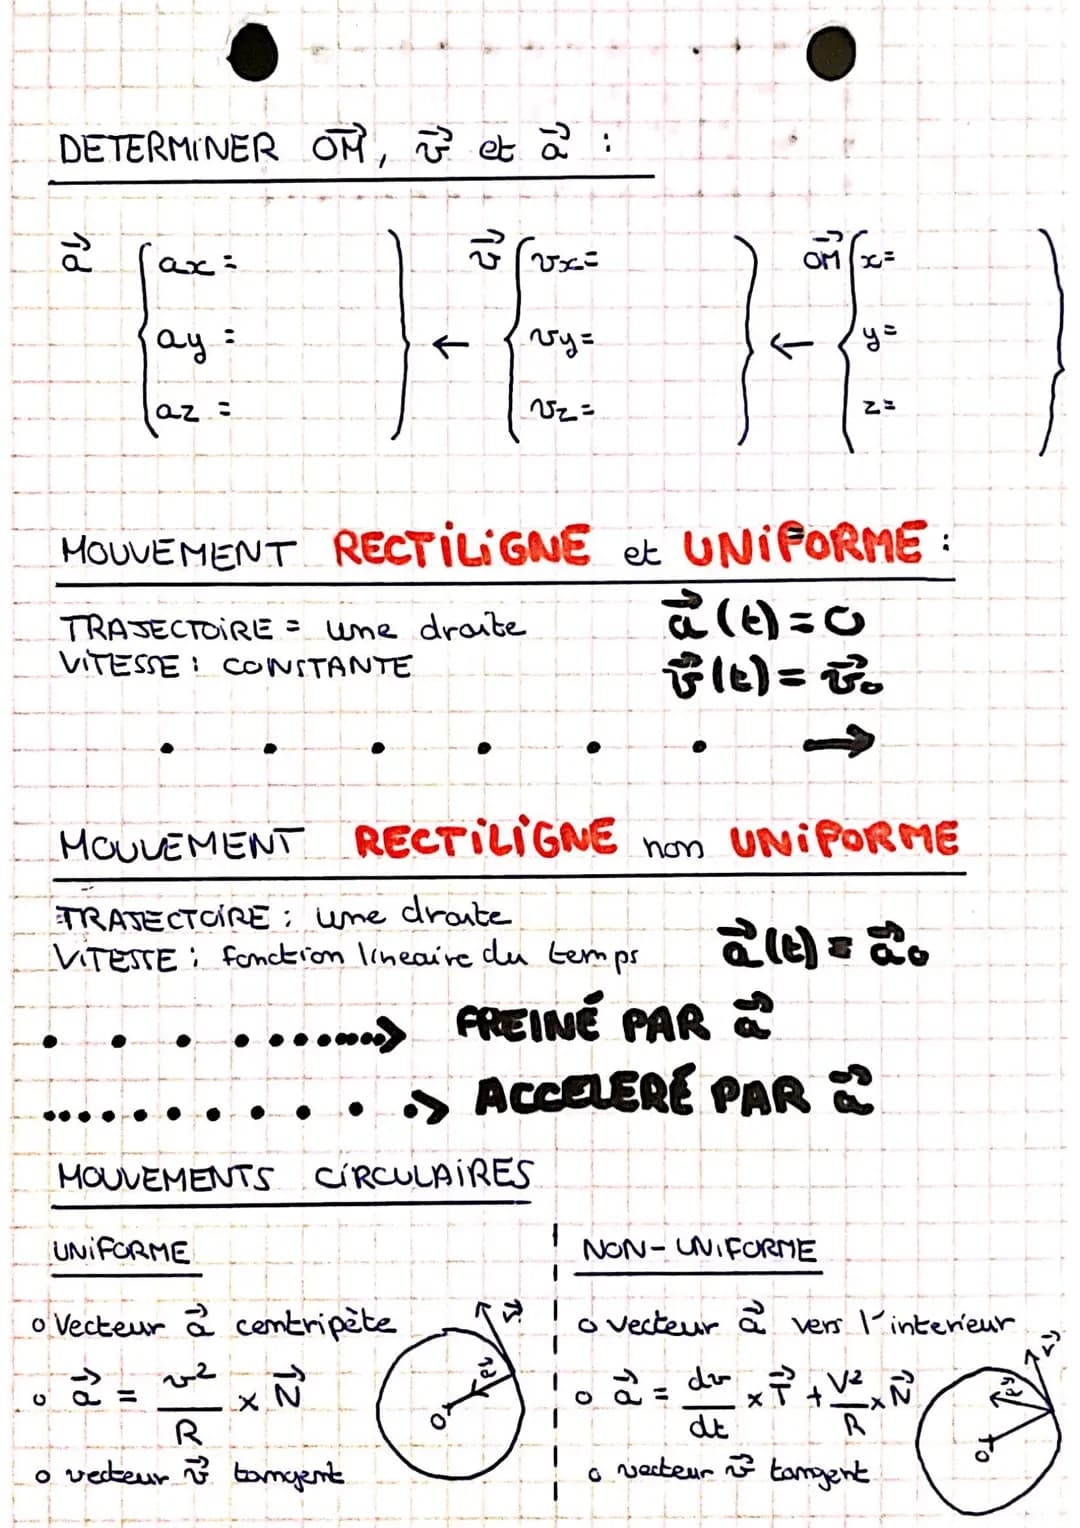 DETERMINER OM⃗, v⃗ et a⃗ :
a⃗ { ax = } ← v⃗ { vx = } ← OM⃗ { x = }
ay = vy = y =
az = vz = z =
MOUVEMENT RECTILIGNE et UNIFORME :
TRAJECTOIRE = une droite a⃗(t) = 0
VITESSE : CONSTANTE v⃗(t) = v⃗₀
MOUVEMENT RECTILIGNE non UNIFORME
TRAJECTOIRE : une droite
VITESSE : fonction lineaire du temps a⃗(t) = a⃗₀
FREINÉ PAR a⃗
ACCELERÉ PAR a⃗
MOUVEMENTS CIRCULAIRES
UNIFORME
o Vecteur a⃗ centripète
o a⃗ = v²/R × N⃗
o vecteur v⃗ tangent
v⃗
a⃗
O
NON-UNIFORME
o vecteur a⃗ vers l'interieur
o a⃗ = dv/dt × T⃗ + V²/R × N⃗
o vecteur v⃗ tangent
v⃗
a⃗
O